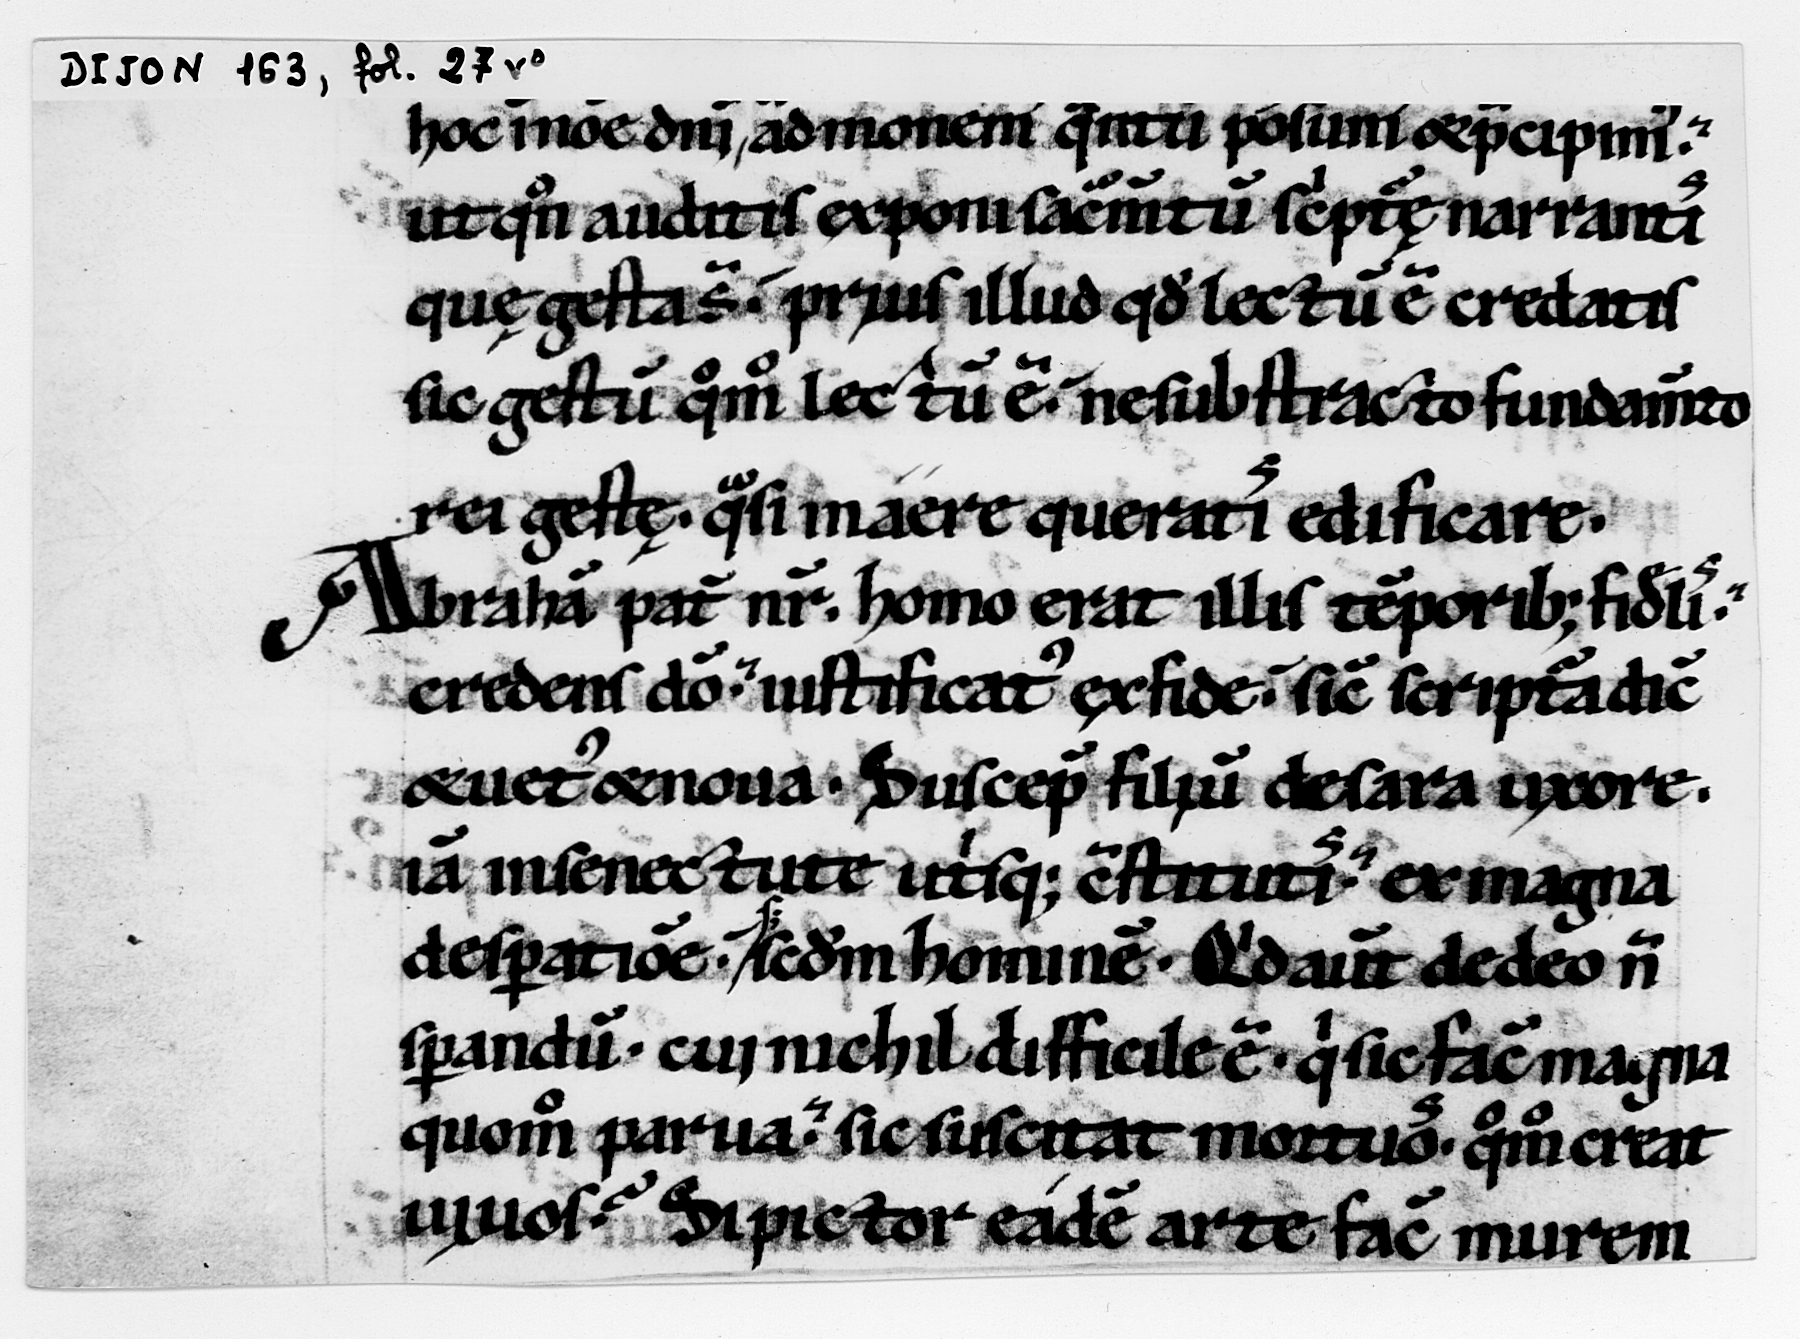 DIJON 163, fol. 27 vº
hoc̄ ı̄ noē dn̄ı, ādmonem̄ q̄ntū posum̄ &p̄cipim̄.
ut qn̊ auditis exponi sac̄m̄tū sc̄ptę narrantıˢ
quę gesta s̄. prius illud qd̄ lectū ē credatis
sic gestū qm̊ lectū ē. ne substracto fundam̄to
rei gestę. qͣsi in aere queratıˢ edificare.
Abrahā pat̄ nr̄. homo erat illis tēporib; fidelıˢ.
credens dō. iustificatꝰ ex fide. sic̄ scriptͣa dic̄
&uetꝰ &noua. Suscep̄ filiū de sara uxore.
iā in senectute utⁱsq; c̄stitutıˢ. ex magna
desꝑatiōe. scd̄m hominē. Qd aūt de deo n̄
sꝑandū. cui nichil difficile ē. qⁱ sic fac̄ magna
quom̊ parua. sic suscitat mortuoˢ. qm̊ creat
uiuos. Si pictor eadē arte fac̄ murem